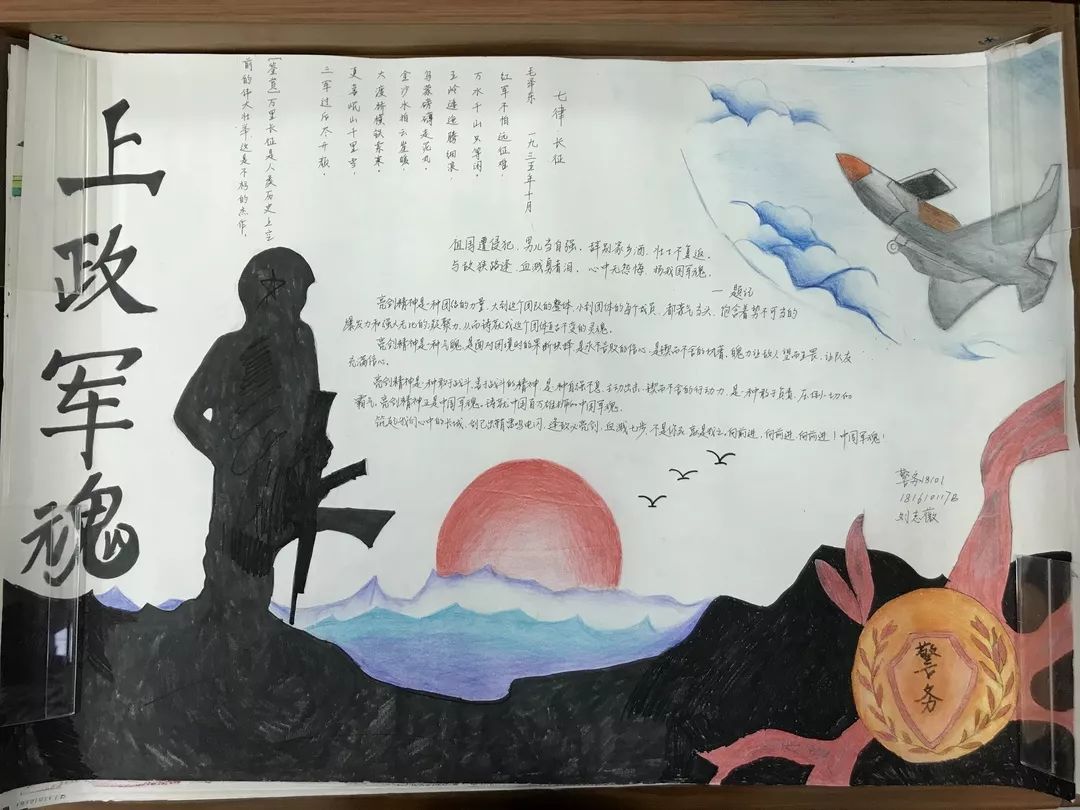 上政军魂
七律·长征
毛泽东 一九三五年十月
红军不怕远征难,
万水千山只等闲。
五岭逶迤腾细浪,
乌蒙磅礴走泥丸。
金沙水拍云崖暖,
大渡桥横铁索寒。
更喜岷山千里雪,
三军过后尽开颜。
[鉴赏]万里长征是人类历史上空
前的伟大壮举,这是不朽的杰作。
祖国遭侵犯,男儿当自强,辞别家乡酒,壮士不复返。
与敌狭路逢,血溅勇者泪,心中无怨悔,扬我国军魂。
——题记
亮剑精神是一种团结的力量,大到这个团队的整体,小到团体的每个成员,都蓄气当天,饱含着势不可当的
爆发力和强人无比的凝聚力,从而铸就成这个团体亘古不变的灵魂。
亮剑精神是一种气魄,是面对困境时的果断抉择,是永不言败的信心,是锲而不舍的执著,魄力让敌人望而生畏,让队友
充满信心。
亮剑精神是一种敢于战斗、善于战斗的精神,是一种自强不息、主动出击、锲而不舍的行动力,是一种敢于负责、压倒一切的
霸气,亮剑精神正是中国军魂,铸就中国百万雄狮的中国军魂。
筑起我们心中的长城,剑已出鞘雷鸣电闪,逢敌必亮剑,血溅七步,不是你死就是我亡,向前进,向前进,向前进!中国军魂!
警务18101
刘志徽
警务